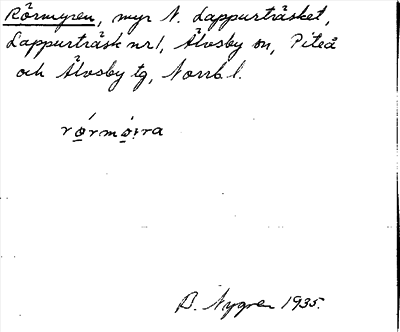 Rörmyren, myr N. Lappurträsket,
Lappurträsk nr 1, Älvsby sn, Piteå
och Älvsby tg, Norrb. l.
B. Nygren 1935.